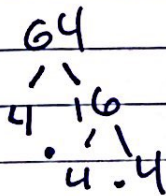 64
4 16
. 4 . 4